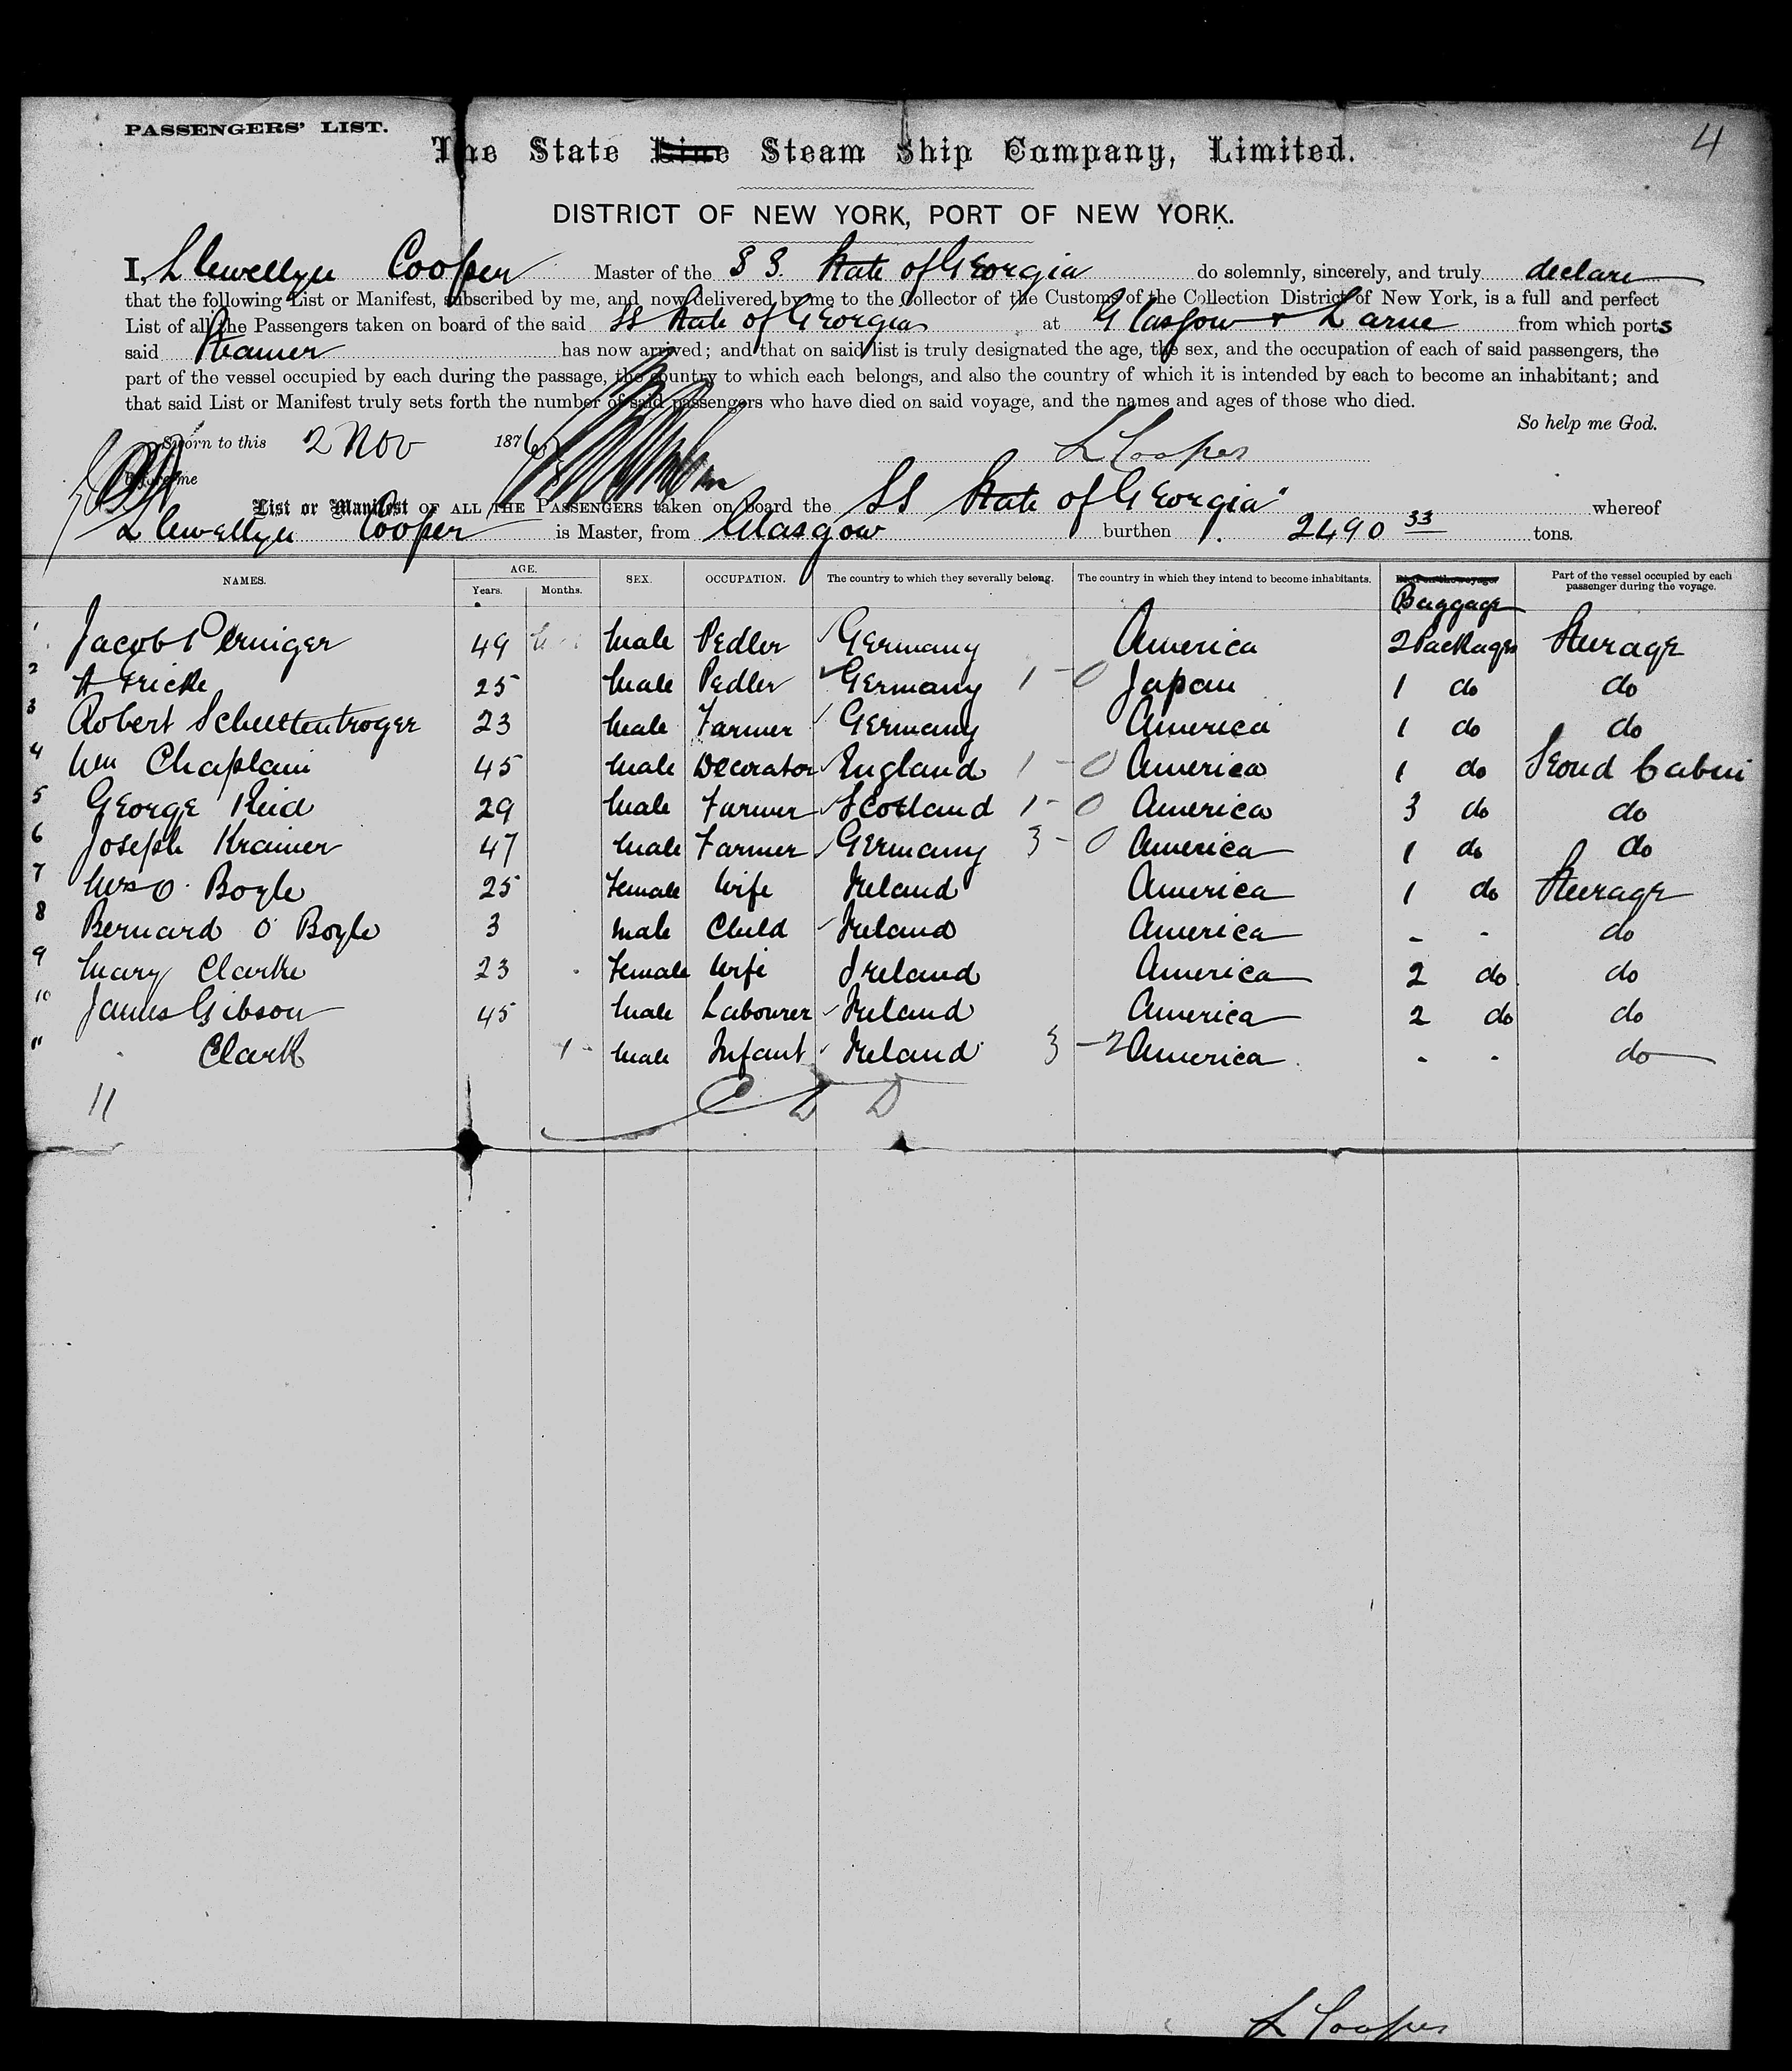 4
PASSENGERS' LIST.
The State Line Steam Ship Company, Limited.
DISTRICT OF NEW YORK, PORT OF NEW YORK.
I, Llewellyn Cooper Master of the S S. State of Georgia do solemnly, sincerely, and truly declare
that the following List or Manifest, subscribed by me, and now delivered by me to the Collector of the Customs of the Collection District of New York, is a full and perfect
List of all the Passengers taken on board of the said SS State of Georgia at Glasgow & Larne from which ports
said Steamer has now arrived; and that on said list is truly designated the age, the sex, and the occupation of each of said passengers, the
part of the vessel occupied by each during the passage, the country to which each belongs, and also the country of which it is intended by each to become an inhabitant; and
that said List or Manifest truly sets forth the number of said passengers who have died on said voyage, and the names and ages of those who died.
So help me God.
Sworn to this 2 Nov 1876
L Cooper
Before me
List or Manifest OF ALL THE PASSENGERS taken on board the SS State of Georgia" whereof
Llewellyn Cooper is Master, from Glasgow burthen 2490 33 tons.
NAMES. AGE. Years. Months. SEX. OCCUPATION. The country to which they severally belong. The country in which they intend to become inhabitants. Died on the voyage. Baggage Part of the vessel occupied by each passenger during the voyage.
1 Jacob 49 Male Pedler Germany America 2 Packages Steerage
2 A Fricke 25 Male Pedler Germany 1 - 0 Japan 1 do do
3 Robert Schuttentroger 23 Male Farmer Germany America 1 do do
4 Wm Chaplain 45 Male Decorator England 1 - 0 America 1 do Second Cabin
5 George Reid 29 Male Farmer Scotland 1 - 0 America 3 do do
6 Joseph Kramer 47 Male Farmer Germany 3 - 0 America 1 do do
7 Mrs O. Boyle 25 Female Wife Ireland America 1 do Steerage
8 Bernard O Boyle 3 Male Child Ireland America - - do
9 Mary Clarke 23 Female Wife Ireland America 2 do do
10 James Gibson 45 Male Labourer Ireland America 2 do do
11 Clark 1 Male Infant Ireland 3 - 2 America - - do
11
C D D
L Cooper